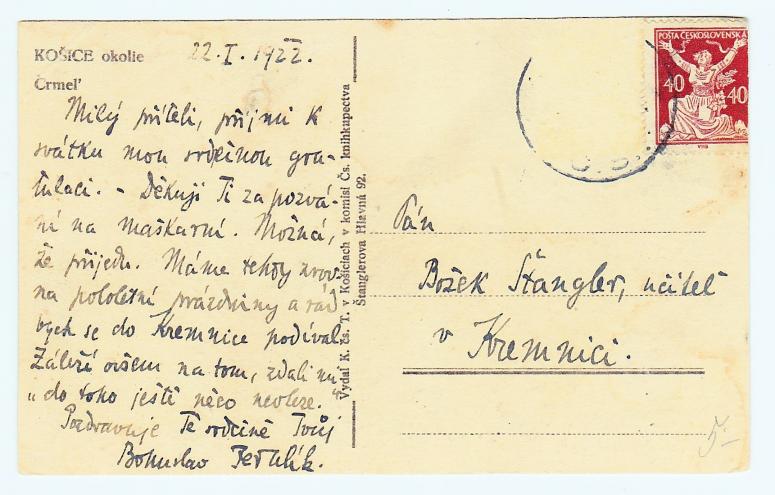 KOŠICE okolie
Črmeľ
22.I.1922.
Milý příteli, přijmi k
svátku mou srdečnou gra-
tulaci. - Děkuji Ti za pozvá-
ní na maškarní. Možná,
že přijedu. Máme tehdy zrov-
na pololetní prázdniny a rád
bych se do Kremnice podíval.
Záleží ovšem na tom, zdali mi
„do toho ještě něco nevleze."
Pozdravuje Tě srdečně Tvůj
Bohuslav
Vydal K. čs. T. v Košiciach v komisi Čs. knihkupectva
Štanglerova Hlavná 92.
POŠTA ČESKOSLOVENSKÁ
40 40
Pán
Božek Štangler, učitel
v Kremnici.
5-